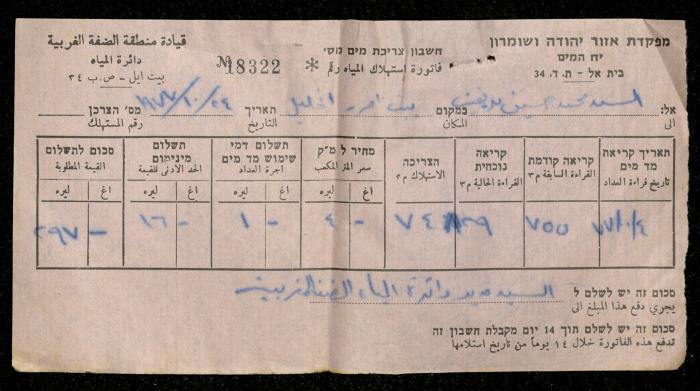 מפקדת אזור יהודה ושומרון
יח המים
בית אל - ת.ד. 34
חשבון צריכת מים מס׳
فاتورة استهلاك المياه رقم
* 18322 №
قيادة منطقة الضفة الغربية
دائرة المياه
بيت ايل - ص.ب ٣٤
אל: السيد محمد حسين במקום بيت امر الخليل תאריך ١٩٧٧/١٠/٢٤ מס׳ הצרכן
الى المكان التاريخ رقم المستهلك
תאריך קריאת מד מים
تاريخ قراءة العداد
קריאה קודמת
القراءة السابقة م٣
קריאה נוכחית
القراءة الحالية م٣
הצריכה
الاستهلاك م٣
מחיר ל מ"ק
سعر المتر المكعب
תשלום דמי שימוש מד מים
اجرة العداد
תשלום מינימום
الحد الادنى للقيمة
סכום לתשלום
القيمة المطلوبة
ليره اغ ليره اغ ليره اغ ليره اغ
٧٥٥ ٨٢٩ ٧٤ ٤ - ١ - ١٦ - ٢٩٧ -
סכום זה יש לשלם ל السيد مدير دائرة المياه الضفة الغربية
يجري دفع هذا المبلغ الى
סכום זה יש לשלם תוך 14 יום מקבלת חשבון זה
تدفع هذه الفاتورة خلال ١٤ يوماً من تاريخ استلامها